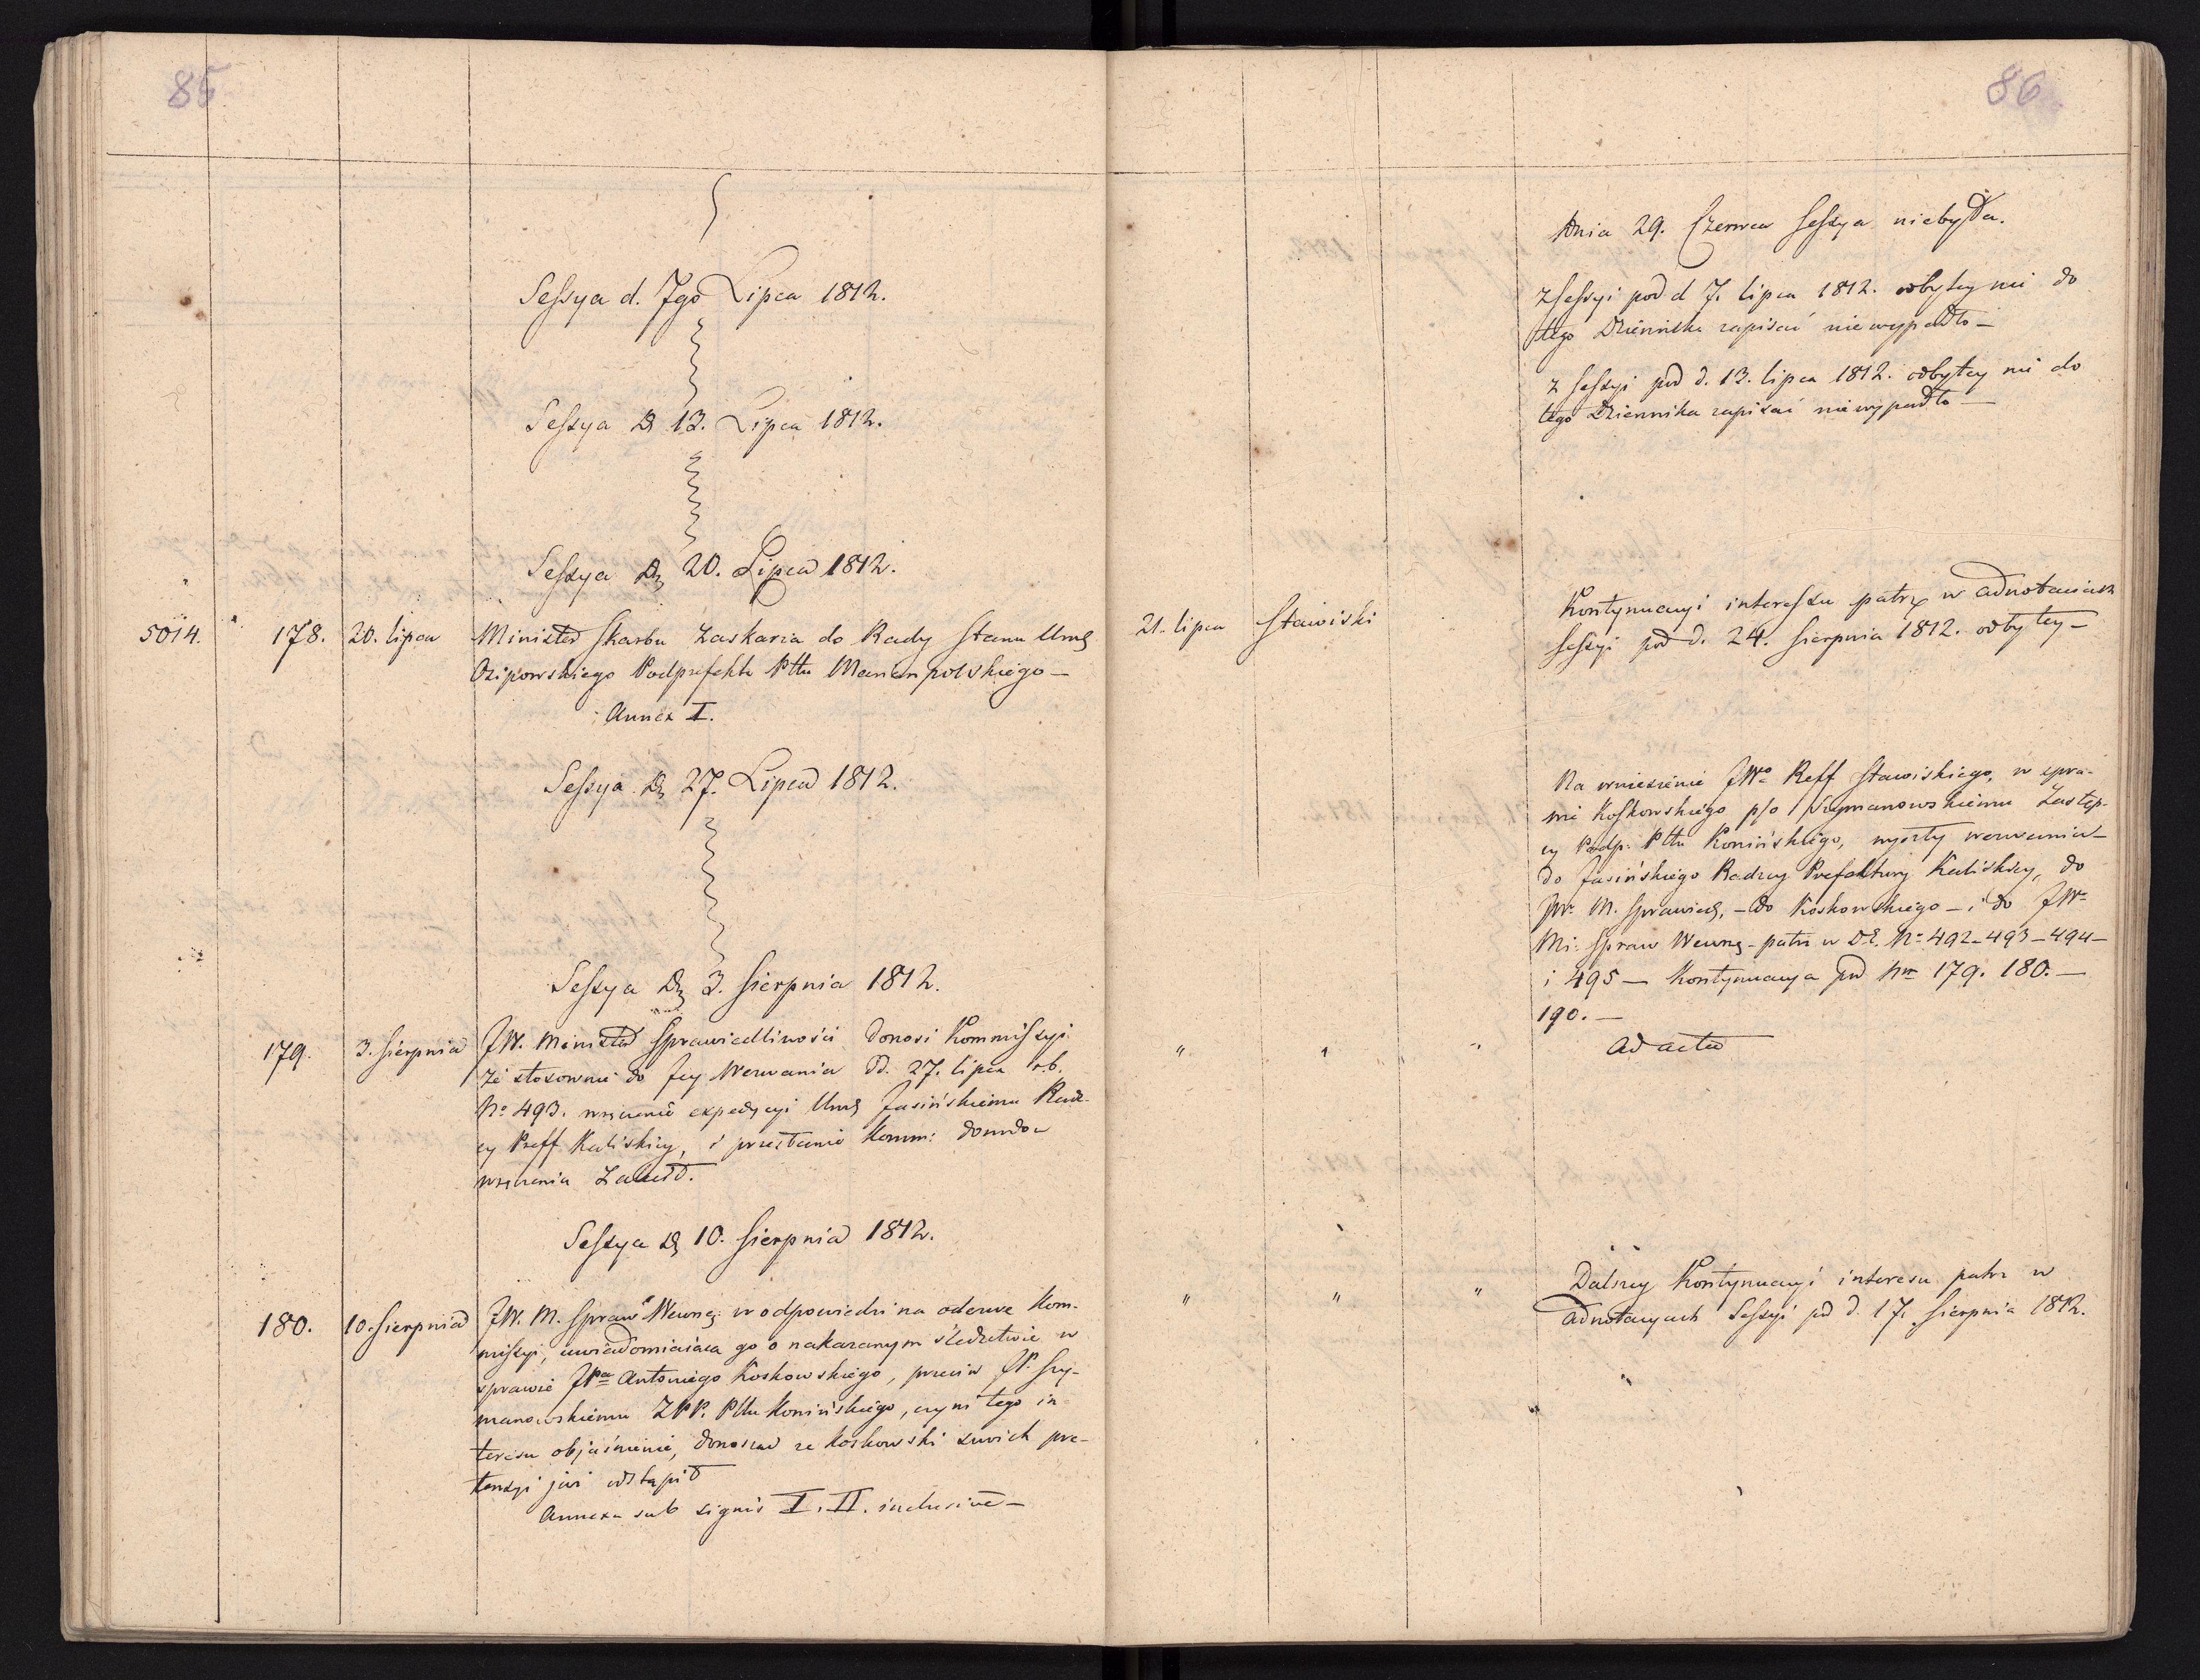 85
Sessya d. 7go Lipca 1812.
Sessya D 13. Lipca 1812.
Sessya D 20. Lipca 1812.
5014. 178. 20. lipca Minister Skarbu Zaskarza do Rady Stanu Ur
Osipowskiego Podprefekta Pttu Maryampolskiego —
Annex I.
Sessya D 27. Lipca 1812.
Sessya D 3. Sierpnia 1812.
179. 3. Sierpnia JW. Minister Sprawiedliwości donosi Kommissyi
że stosownie do Jey Wezwania dd. 27. lipca r.b.
No 493. wręczenie expedycyi Jasińskiemu Radz-
cy Preff Kaliskiey, i przesłanie Komm: dowodu
wręczenia Zalecił.
Sessya D 10. Sierpnia 1812.
180. 10. Sierpnia JW. M. Spraw Wewnę: w odpowiedzi na odezwę Kom-
missyi, uwiadomiaiącą go o nakazanym śledztwie w
sprawie JPa Antoniego Koskowskiego, przeciw JP. Szy-
manowskiemu ZPP. Pttu Konińskiego, czyni tego in-
teresu objaśnienie, donosząc że Koskowski swoich pre-
tensyi już odstąpił
Annexa sub signis I. II. inclusive —
86
Dnia 29. Czerwca Sessya niebyła.
Z Sessyi pod d 7. lipca 1812. odbytey nic do
tego Dziennika zapisać niewypadło —
Z Sessyi pod d. 13. lipca 1812. odbytey nic do
tego Dziennika zapisać niewypadło —
21. lipca Stawiski Kontynuacyi interessu patrz w adnotaciach
Sessyi pod d. 24. Sierpnia 1812. odbytey —
Na wniesienie JWo Reff Stawiskiego, w spra-
wie Koskowskiego p/o Szymanowskiemu Zastęp-
cy Podp. Pttu Konińskiego, wyszły wezwania —
do Jasińskiego Radzcy Prefektury Kaliskiey, do
JW. M. Sprawied, — do Koskowskiego — i do JW
Mi: Spraw Wewnę — patrz w DE. No 492 — 493 — 494 —
i 495 — Kontynuacya pod Nm 179. 180. —
190. —
" " " " ad acta
" " " Dalszey Kontynuacyi interesu patrz w
adnotacyach Sessyi pod d. 17. Sierpnia 1812.